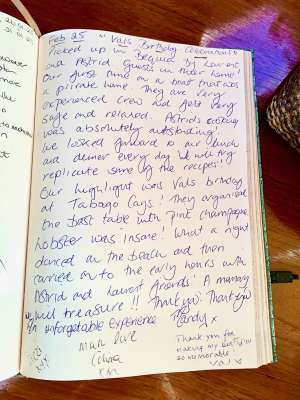 Feb 25 "Vals Birthday Celebration!"
Picked up in Bequia by Laurent
and Astrid. Guests in their home!
Our first time on a boat that was
a private home. They are very
experienced crew and felt very
safe and relaxed. Astrids cooking
was absolutely outstanding!
We looked forward to our lunch
and dinner every day & will try
replicate some of the recipes!
Our highlight was Vals birthday
at Tobago Cays! They organised
the best table with pink champagne
lobster was insane! What a night
danced on the beach and then
carried on to the early hours with
Astrid and Laurent friends. A memory
will treasure!! Thank you. Thank you
unforgetable experience
Much love
x
Thank you for
making my birthday
so memorable
Val x